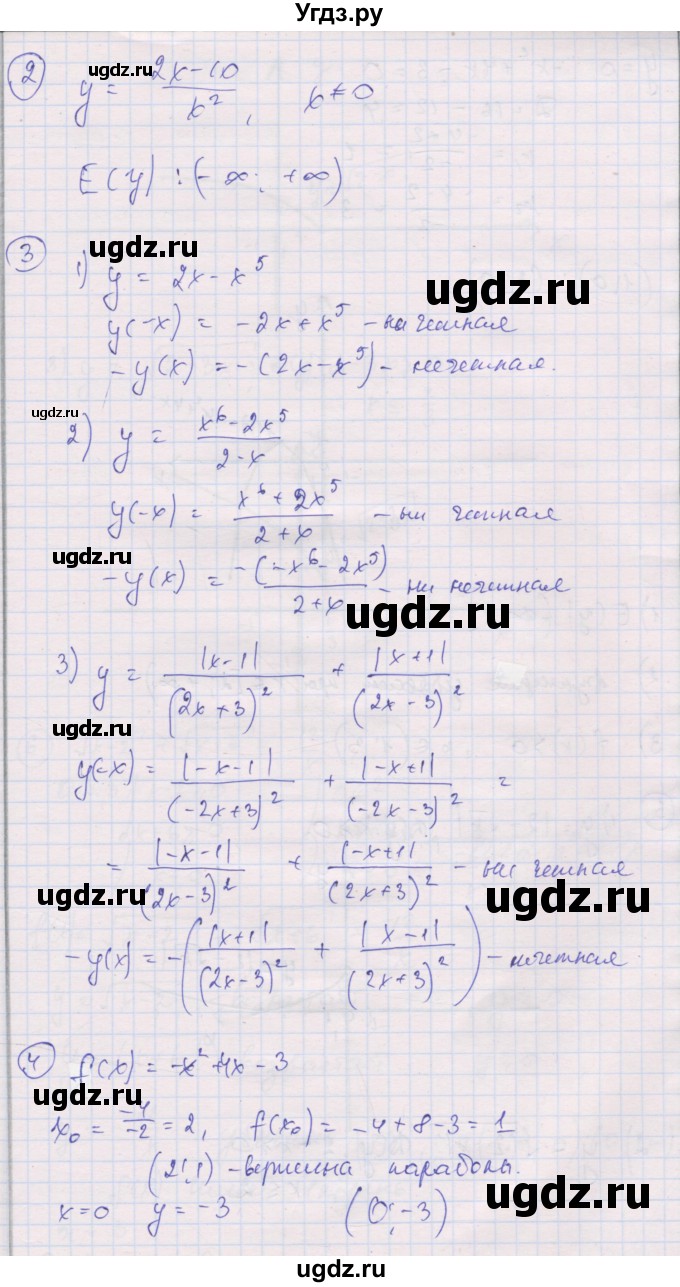 Угдз.ру
ugdz.ru
2 y = (2x-10)/x², x≠0
E(y): (-∞; +∞)
ugdz.ru
3 1) y = 2x - x⁵
ugdz.ru
y(-x) = -2x + x⁵ - ни четная
-y(x) = -(2x - x⁵) - нечетная.
ugdz.ru
2) y = (x⁶ - 2x⁵)/(2-x)
y(-x) = (x⁶ + 2x⁵)/(2+x) - ни четная
ugdz.ru
-y(x) = -(-x⁶ - 2x⁵)/(2+x) - ни нечетная
ugdz.ru
3) y = |x-1|/(2x+3)² + |x+1|/(2x-3)²
ugdz.ru
y(-x) = |-x-1|/(-2x+3)² + |-x+1|/(-2x-3)² =
= |-x-1|/(2x-3)² + |-x+1|/(2x+3)² - ни четная
ugdz.ru
ugdz.ru
-y(x) = -(|x+1|/(2x-3)² + |x-1|/(2x+3)²) - нечетная
4 f(x) = -x² + 4x - 3
ugdz.ru
x₀ = -4/-2 = 2, f(x₀) = -4 + 8 - 3 = 1
(2; 1) - вершина параболы.
ugdz.ru
x = 0 y = -3 (0; -3)
ugdz.ru